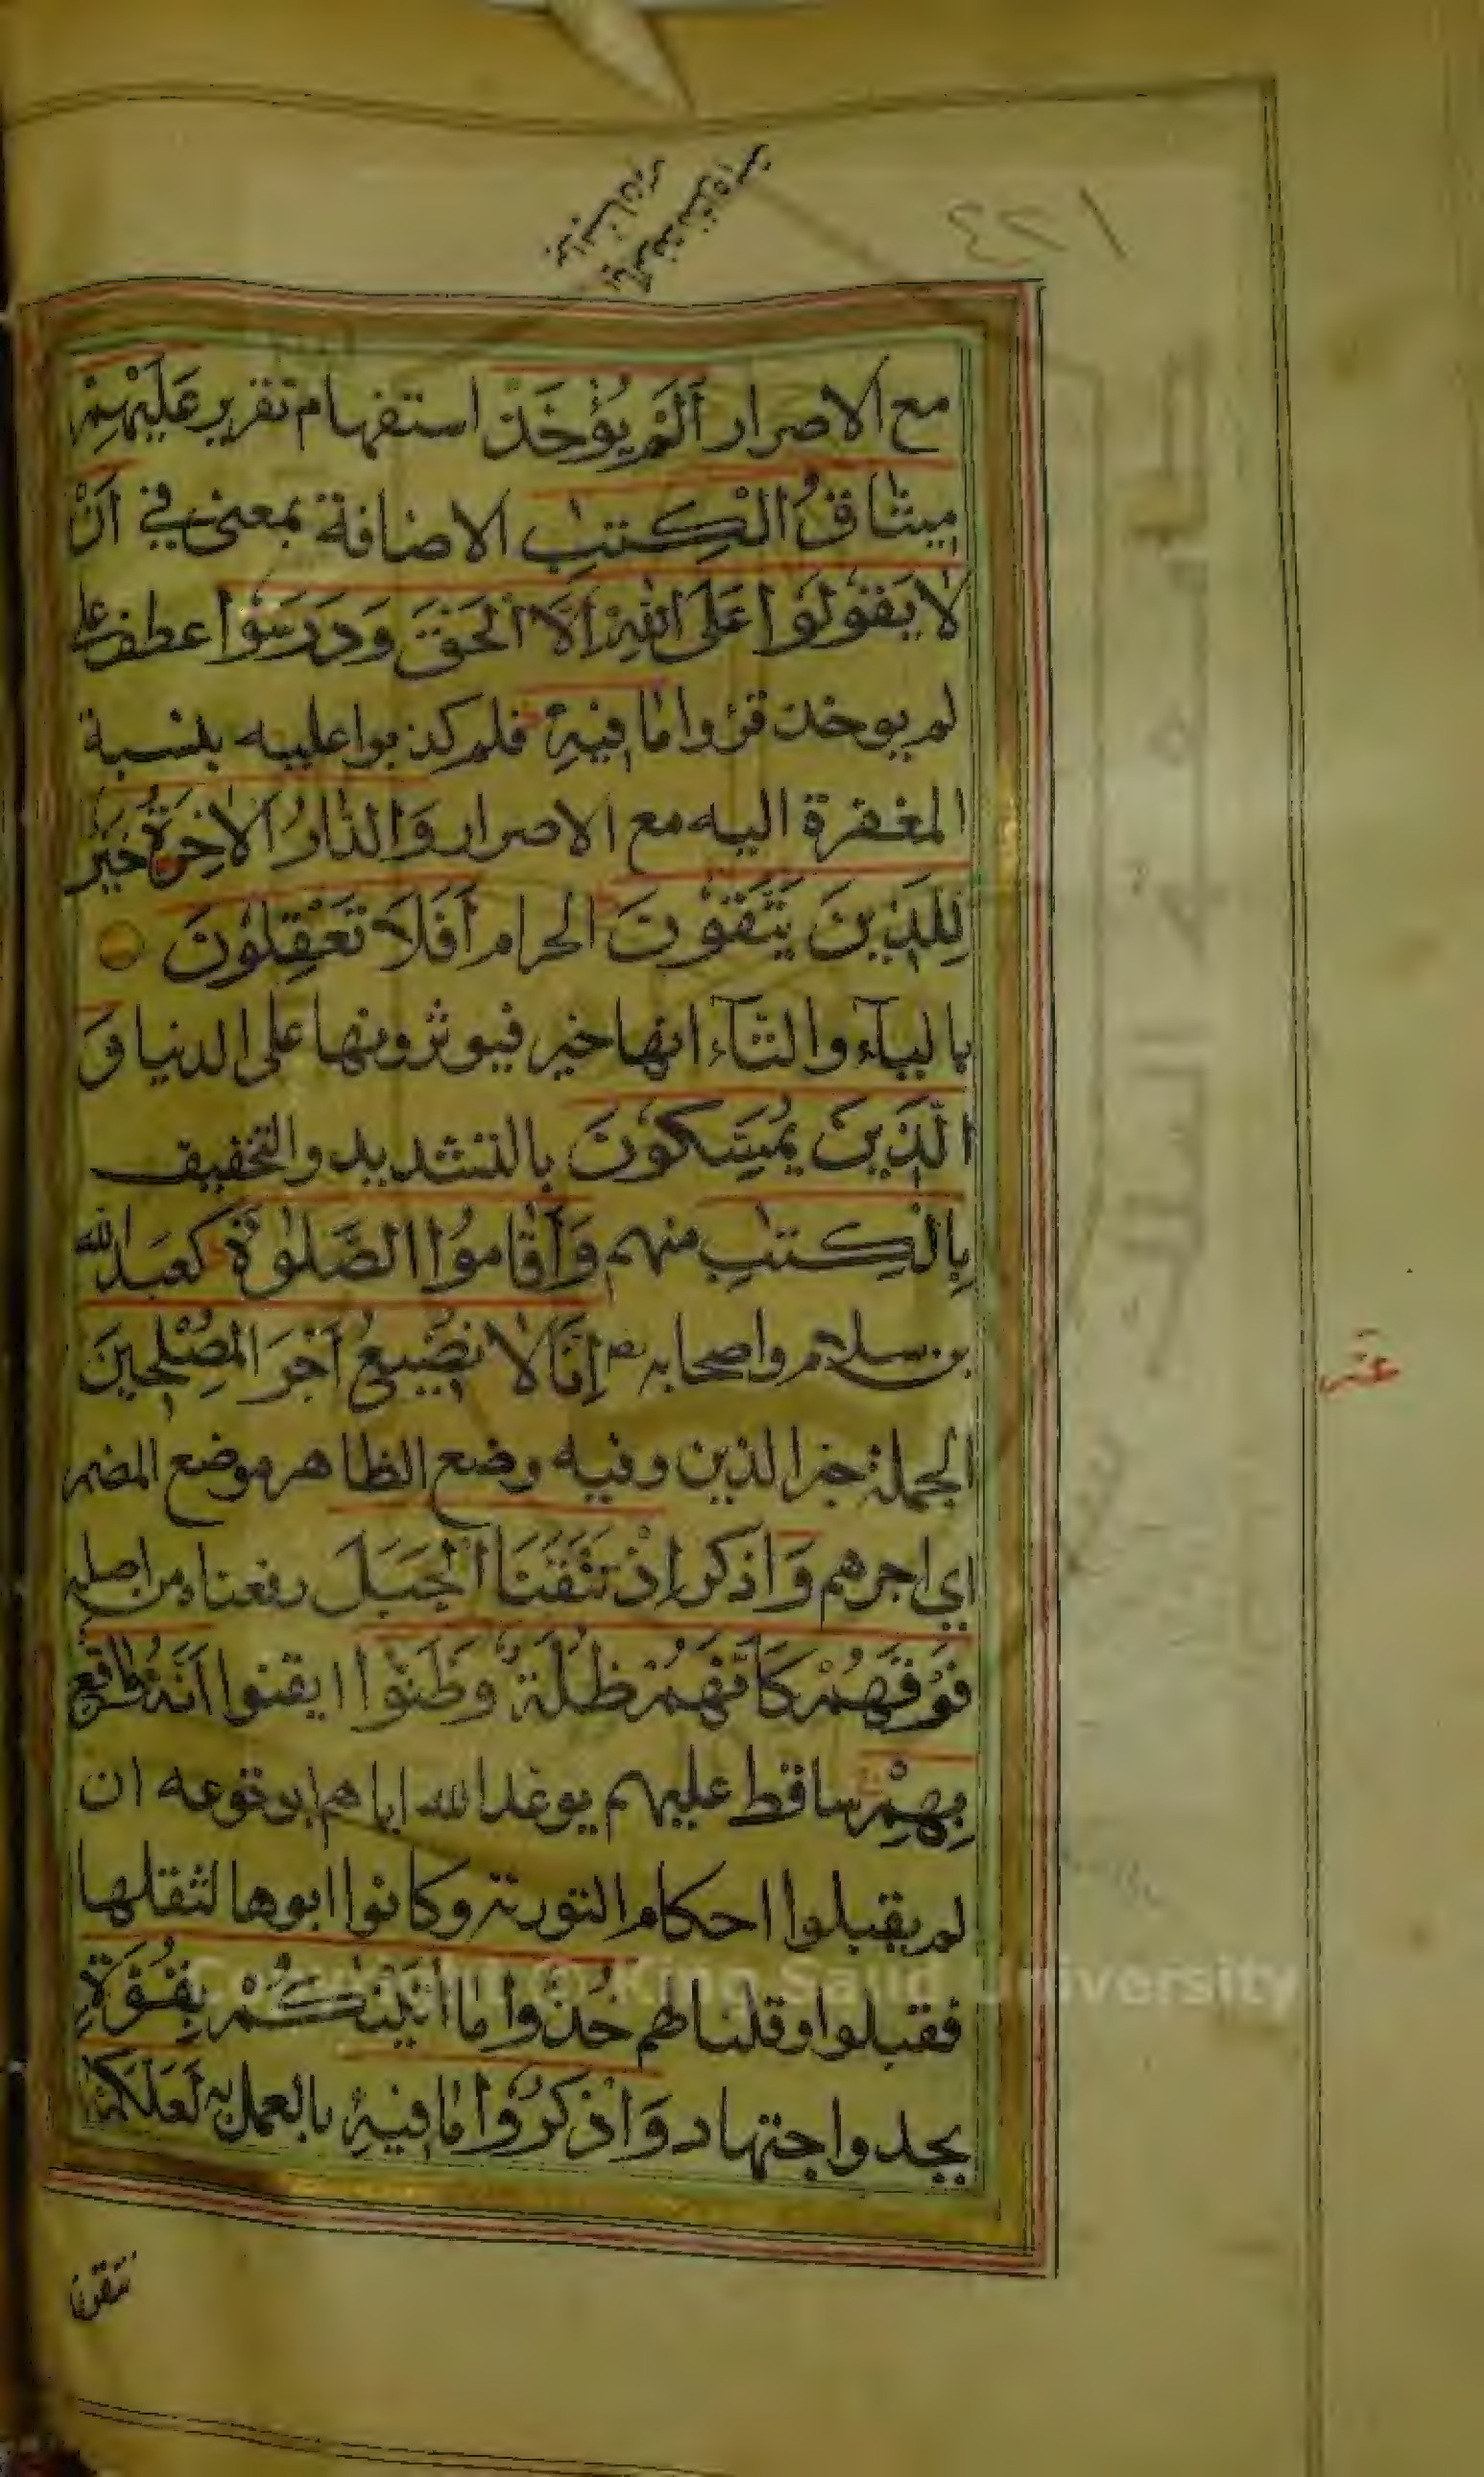 ٢٢٤
مع الاصرار أَلَمْ يُؤْخَذْ استفهام تقرير عَلَيْهِمْ
مِيثَاقُ الْكِتٰبِ الاضافة بمعنى في اَنْ
لَا يَقُولُوا عَلَى اللهِ اِلَّا الْحَقَّ وَدَرَسُوا عطف على
لم يوخذ قرؤا مَا فِيهِ فلم كذبوا عليه بنسبة
المغفرة اليه مع الاصرار وَالدَّارُ الْاٰخِرَةُ خَيْرٌ
لِلَّذِينَ يَتَّقُونَ الحرام أَفَلَا تَعْقِلُونَ
بالياء والتاء انها خير فيوثرونها على الدنيا وَ
الَّذِينَ يُمَسِّكُونَ بالتشديد والتخفيف
بِالْكِتٰبِ منهم وَأَقَامُوا الصَّلٰوةَ كعبد الله
بن سلام واصحابه اِنَّا لَا نُضِيعُ أَجْرَ الْمُصْلِحِينَ
الجملة خبر الذين وفيه وضع الظاهر موضع المضمر
اي اجرهم وَ اذكر اِذْ نَتَقْنَا الْجَبَلَ رفعناه من اصله
فَوْقَهُمْ كَأَنَّهُمْ ظُلَّةٌ وَظَنُّوا ايقنوا اَنَّهُ وَاقِعٌ
بِهِمْ ساقط عليهم بوعد الله اياهم بوقوعه ان
لم يقبلوا احكام التورية وكانوا ابوها لثقلها
فقبلوا وقلنا لهم خُذُوا مَا اٰتَيْنٰكُمْ بِقُوَّةٍ
بجد واجتهاد وَاذْكُرُوا مَا فِيهِ بالعمل به لَعَلَّكُمْ
تتقون
Copyright © King Saud University